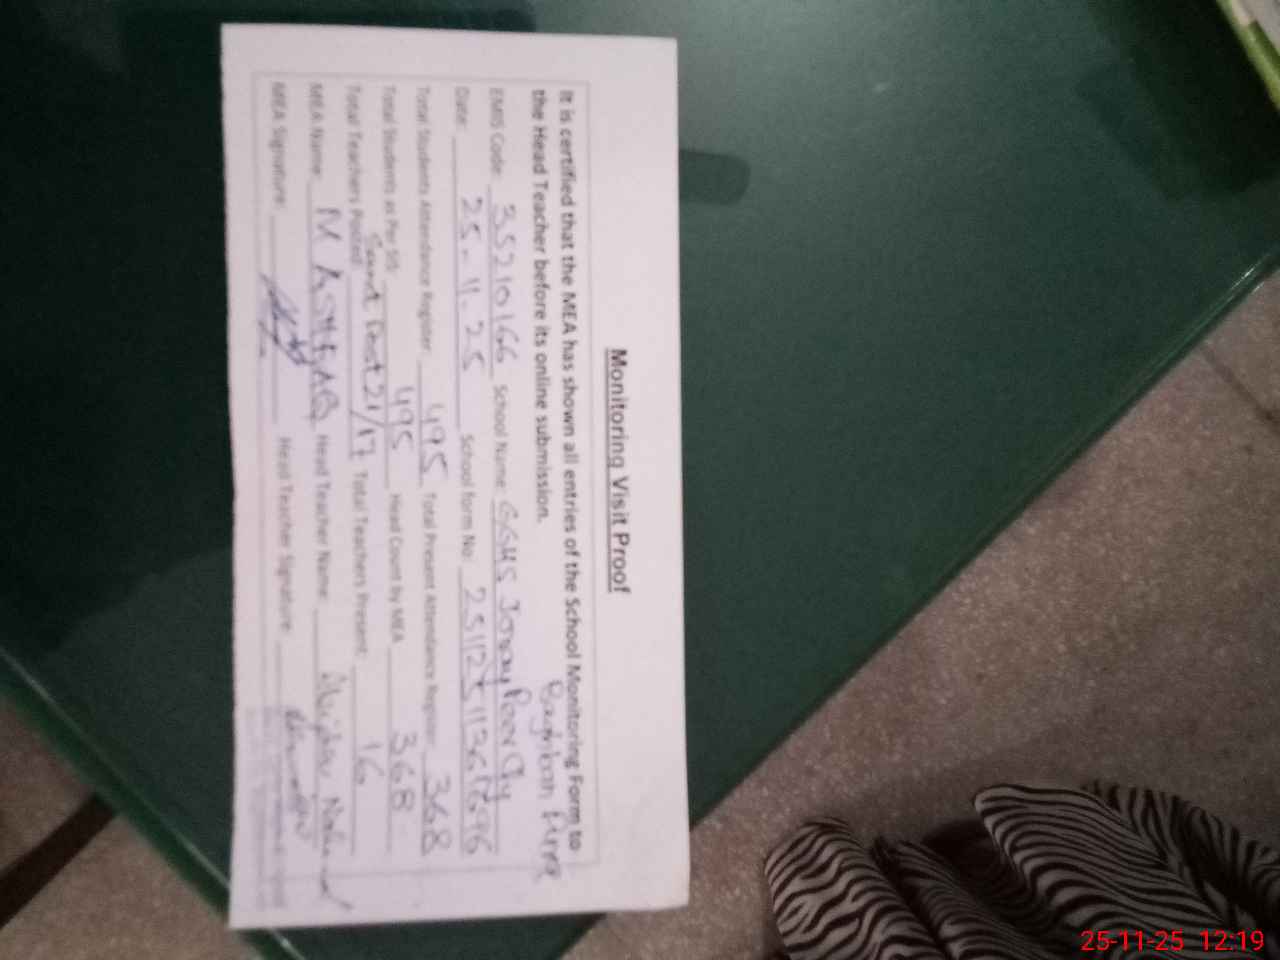 Monitoring Visit Proof
It is certified that the MEA has shown all entries of the School Monitoring Form to
the Head Teacher before its online submission.
EMIS Code: 35210166 School Name: GGHS
Date: 25-11-25 School form No:
Total Students Attendance Register: 495 Total Present Attendance Register: 368
Total Students as Per SIS: 495 Head Count by MEA 368
Total Teachers Posted: 21/17 Total Teachers Present: 16
MEA Name: M ASHFAQ Head Teacher Name:
MEA Signature: Head Teacher Signature:
25-11-25 12:19